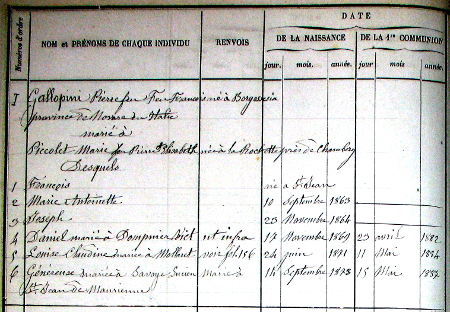 DATE
Numéros d'ordre NOM et PRÉNOMS DE CHAQUE INDIVIDU RENVOIS DE LA NAISSANCE DE LA 1re COMMUNION
jour. mois. année. jour. mois année.
I Gallopini Pierre feu François né à Borgosesia
province de Novare en Italie
marié à
Piccolet Marie née à la Rochette près de Chambéry
Desquels
1 François né à St Jean
2 Marie Antoinette 10 Septembre 1863
3 Joseph 23 Novembre 1864
4 Daniel marié à Dompnier ut infra 17 Novembre 1869 23 avril 1882
5 Louise Claudine mariée à Mollaret voir fol. 156 24 juin 1871 11 Mai 1884
6 Généreuse mariée à Savoye Mariée à 14 Septembre 1875 15 Mai 1887
St Jean de Maurienne